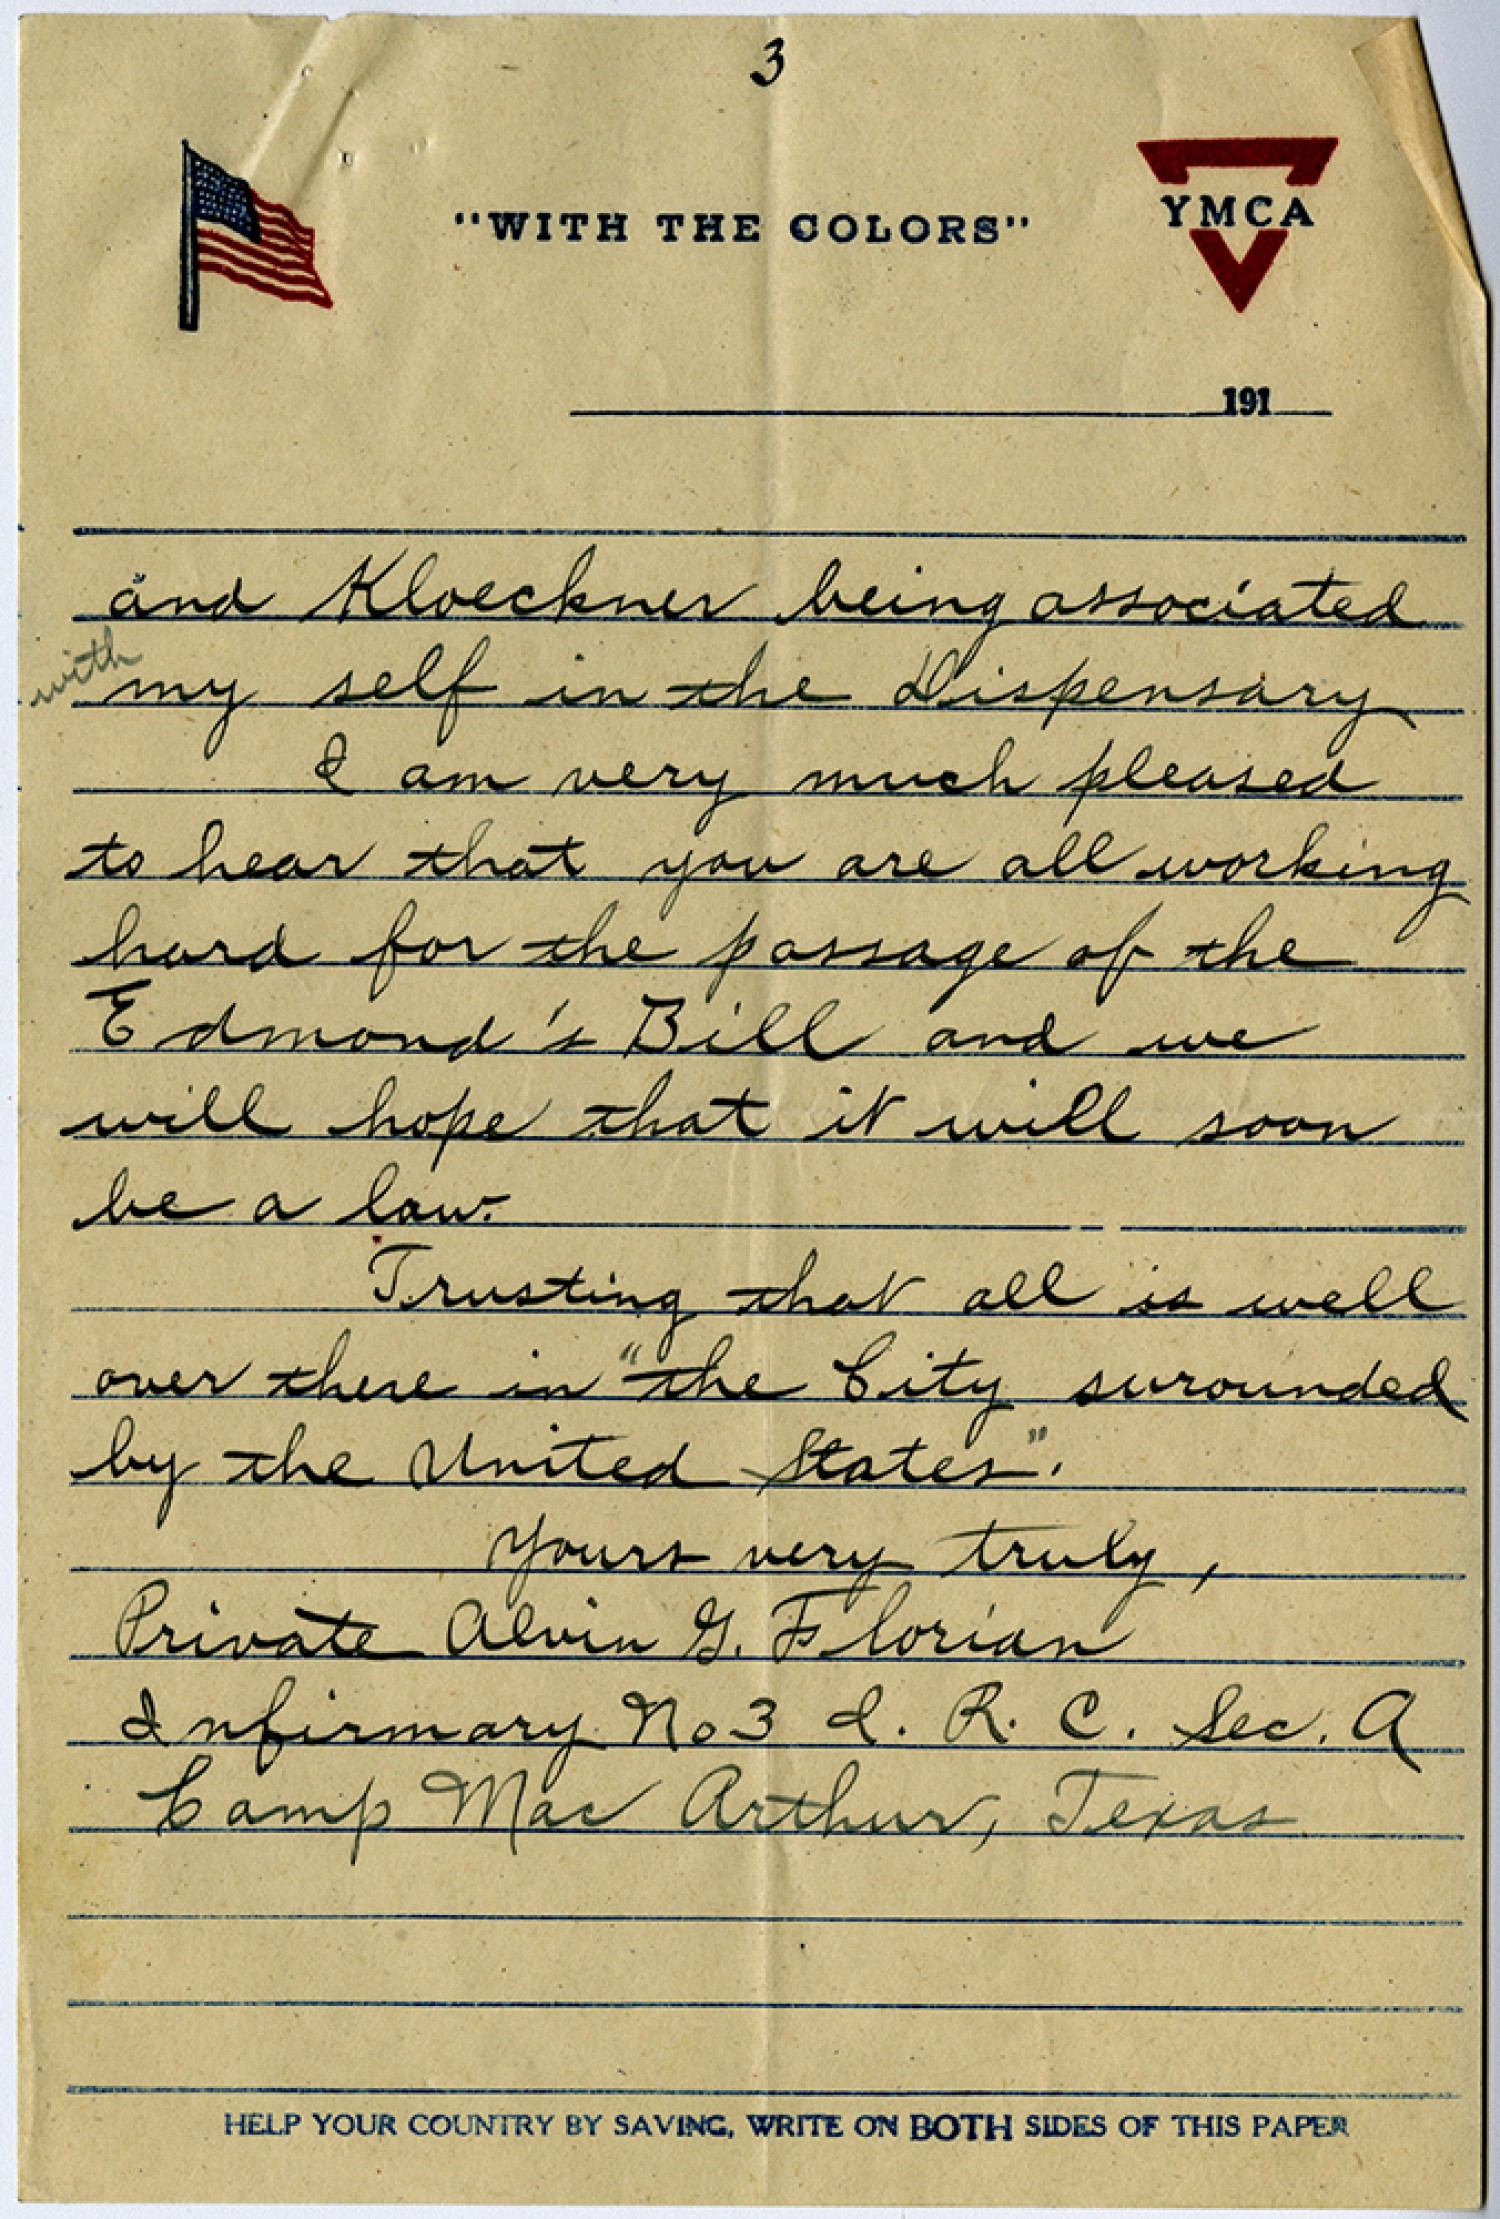 3
"WITH THE COLORS"
YMCA
191
and Kloeckner being associated
with my self in the Dispensary
I am very much pleased
to hear that you are all working
hard for the passage of the
Edmond's Bill and we
will hope that it will soon
be a law.
Trusting that all is well
over there in "the City surounded
by the United States".
Yours very truly,
Private Alvin G. Florian
Infirmary No 3 I. R. C. Sec. A
Camp Mac Arthur, Texas
HELP YOUR COUNTRY BY SAVING, WRITE ON BOTH SIDES OF THIS PAPER